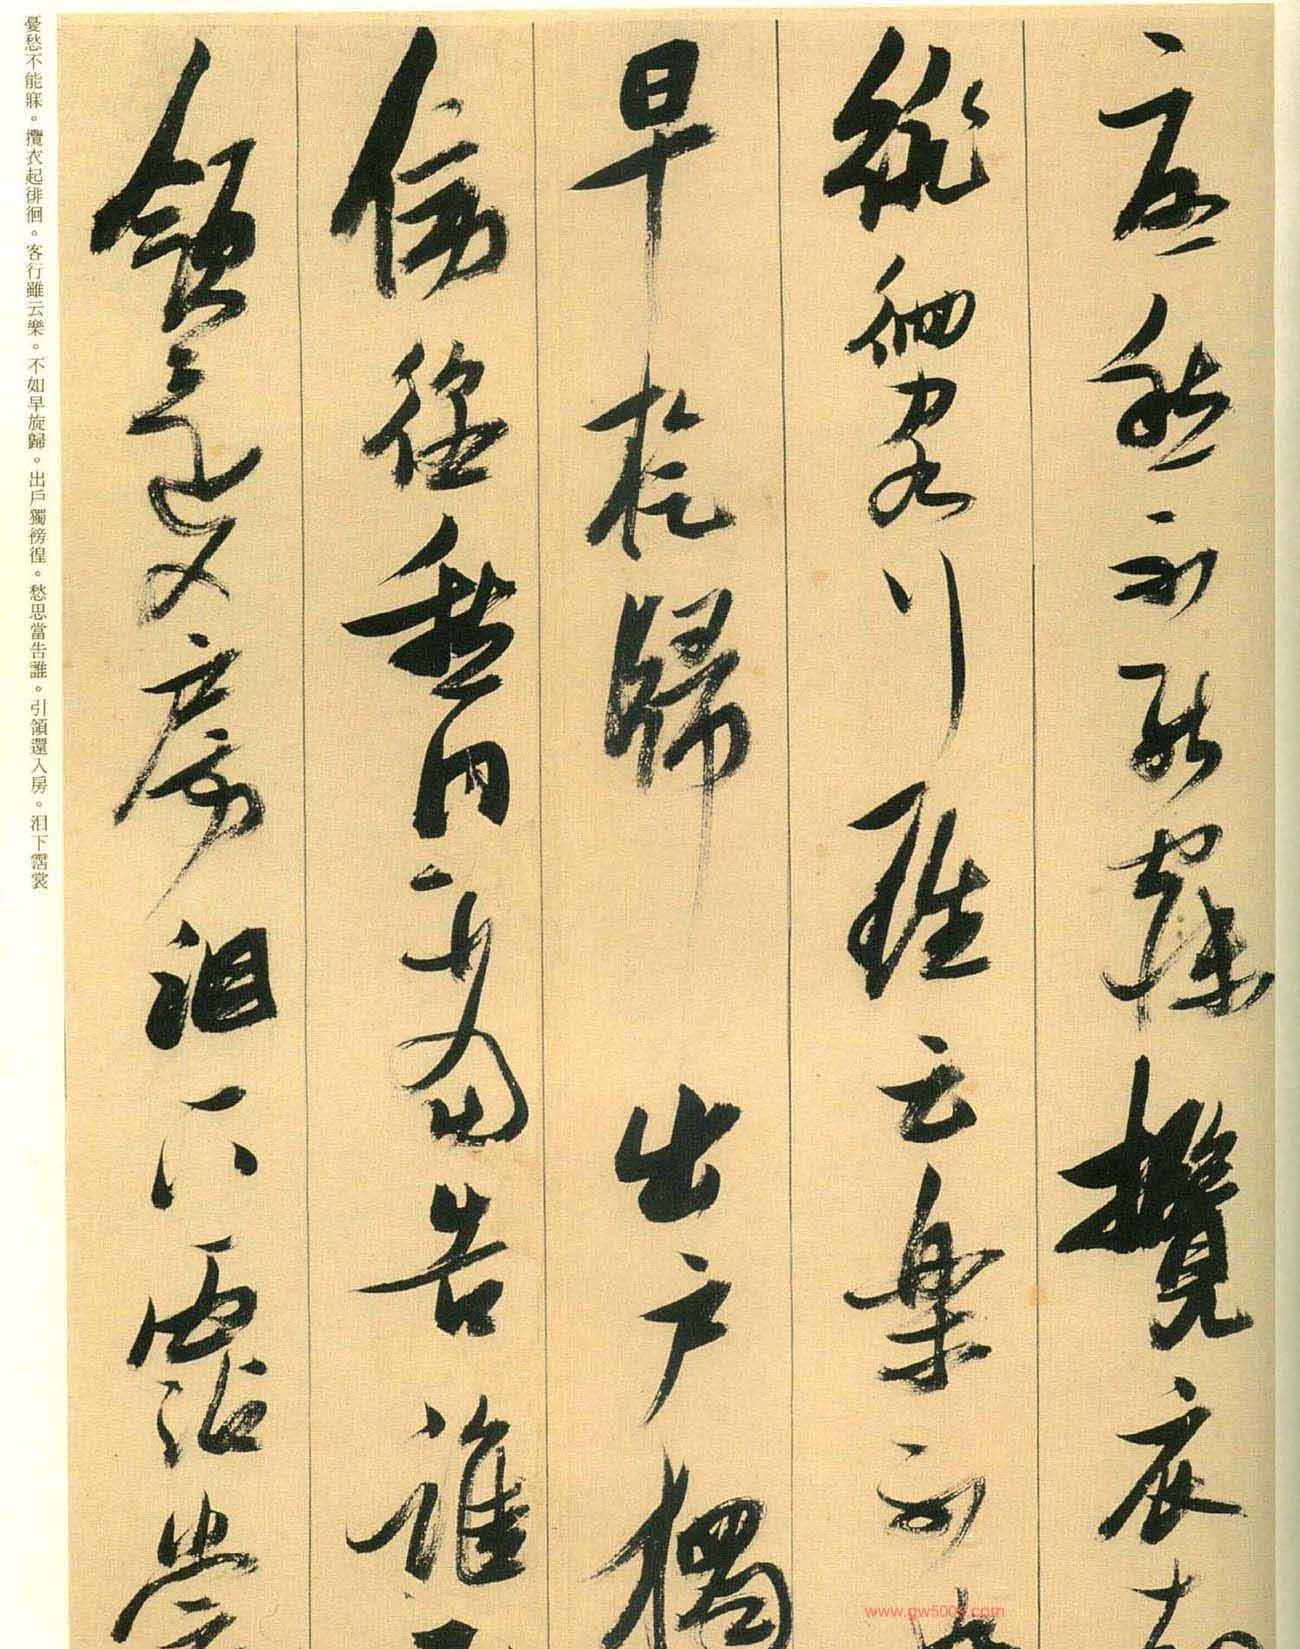 憂愁不能寐攬衣起
徘徊客行雖云樂不如
早旋歸 出戶獨
傍徨愁思當告誰引
領還入房泪下霑裳
憂愁不能寐。攬衣起徘徊。客行雖云樂。不如早旋歸。出戶獨傍徨。愁思當告誰。引領還入房。泪下霑裳
www.gw500g.com